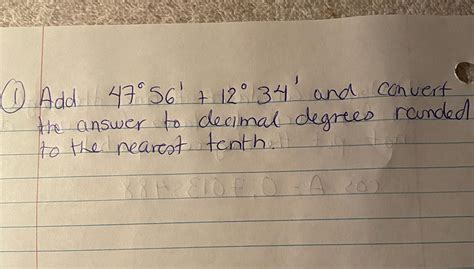 ① Add 47° 56' + 12° 34' and convert
the answer to decimal degrees rounded
to the nearest tenth.